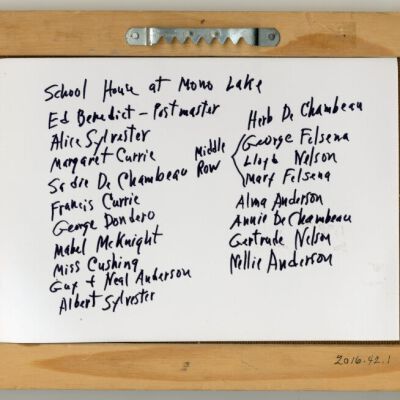 School House at Mono Lake
Ed Benedict - Postmaster
Alice Sylvester
Margaret Currie
Sadie De Chambeau
Francis Currie
George Dondero
Mabel McKnight
Miss Cushing
Guy + Neal Anderson
Albert Sylvester
Middle Row
Herb De Chambeau
George Felsena
Lloyd Nelson
Mary Felsena
Alma Anderson
Annie De Chambeau
Gertrude Nelson
Nellie Anderson
2016.42.1